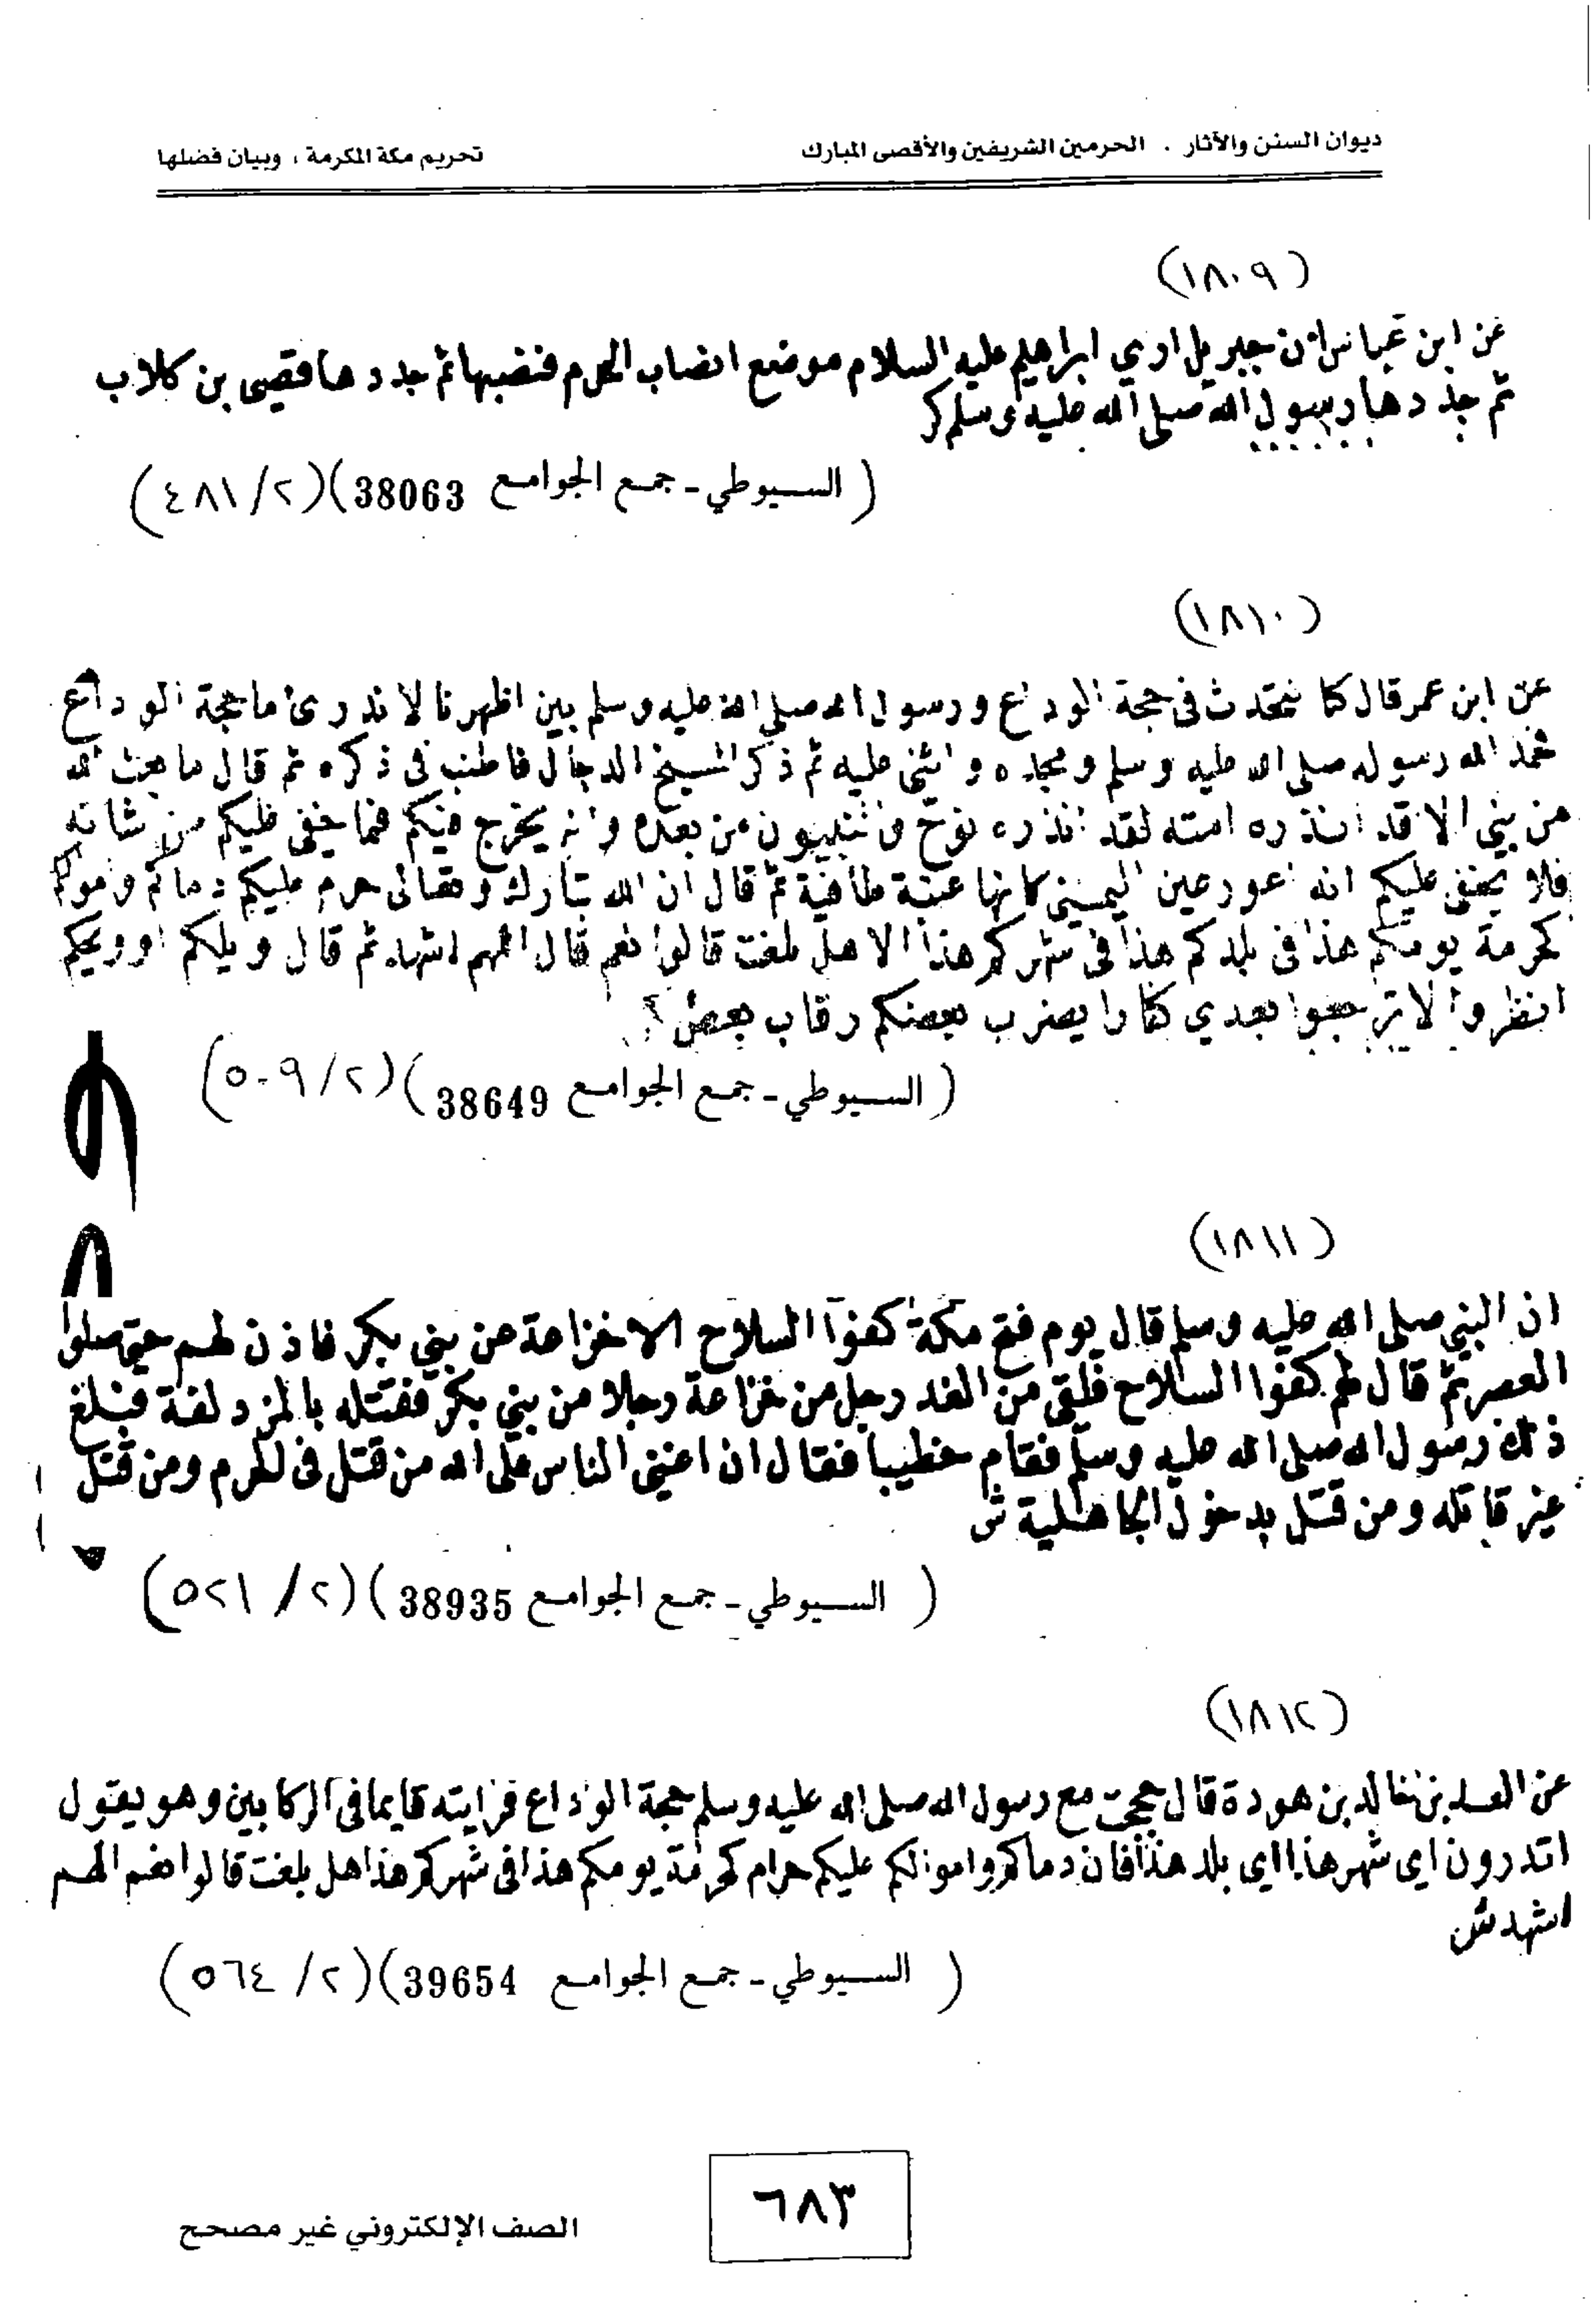 ديوان السنن والآثار . الحرمين الشريفين والأقصى المبارك
تحريم مكة المكرمة ، وبيان فضلها
(١٨٠٩)
عن ابن عباس ان جبريل ارى ابراهيم عليه السلام موضع انصاب الحرم فنصبها ثم جدد ها قصى بن كلاب
ثم جدد ها رسول الله صلى الله عليه وسلم كر
( السيوطي - جمع الجوامع 38063)(٢/ ٤٨١)
(١٨١٠)
عن ابن عمر قال كنا نتحدث فى حجة الوداع ورسول الله صلى الله عليه وسلم بين اظهرنا لا ندرى ما حجة الوداع
فحمد الله رسوله صلى الله عليه وسلم ومجده و اثنى عليه ثم ذكر المسيخ الدجال فاطنب فى ذكره ثم قال ما بعث الله
من نبى الا قد انذره امته لقد انذره نوح والنبيون من بعده وانه يخرج فيكم فما خفى عليكم من شانه
فلا يخفى عليكم انه اعور عين اليمنى كانها عنبة طافية ثم قال ان الله تبارك وتعالى حرم عليكم دماكم واموالكم
كحرمة يومكم هذا فى بلدكم هذا فى شهركم هذا الا هل بلغت قالوا نعم قال اللهم اشهد ثم قال ويلكم او ويحكم
انظروا لا ترجعوا بعدي كفارا يضرب بعضكم رقاب بعض
( السيوطي - جمع الجوامع 38649)(٢/ ٥٠٩)
(١٨١١)
ان النبي صلى الله عليه وسلم قال يوم فتح مكة كفوا السلاح الا خزاعة عن بني بكر فاذن لهم حتى صلوا
العصر ثم قال لهم كفوا السلاح فلقى من الغد رجل من خزاعة رجلا من بني بكر فقتله بالمزدلفة فبلغ
ذلك رسول الله صلى الله عليه وسلم فقام خطيبا فقال ان اعتى الناس على الله من قتل فى الحرم ومن قتل
غير قاتله ومن قتل بدخول الجاهلية ش
( السيوطي - جمع الجوامع 38935)(٢/ ٥٢١)
(١٨١٢)
عن العداء بن خالد بن هودة قال حججت مع رسول الله صلى الله عليه وسلم حجة الوداع فرايته قايما فى الركابين وهو يقول
اتدرون اى شهر هذا اى بلد هذا فان دماكم واموالكم عليكم حرام كحرمة يومكم هذا فى شهركم هذا هل بلغت قالوا نعم اللهم
اشهد ش
( السيوطي - جمع الجوامع 39654)(٢/ ٥٦٤)
٦٨٣
الصف الإلكتروني غير مصحح